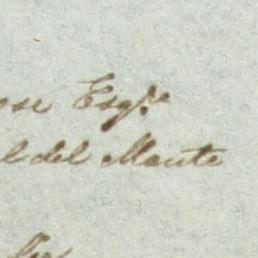 ose Esqre
l del Monte